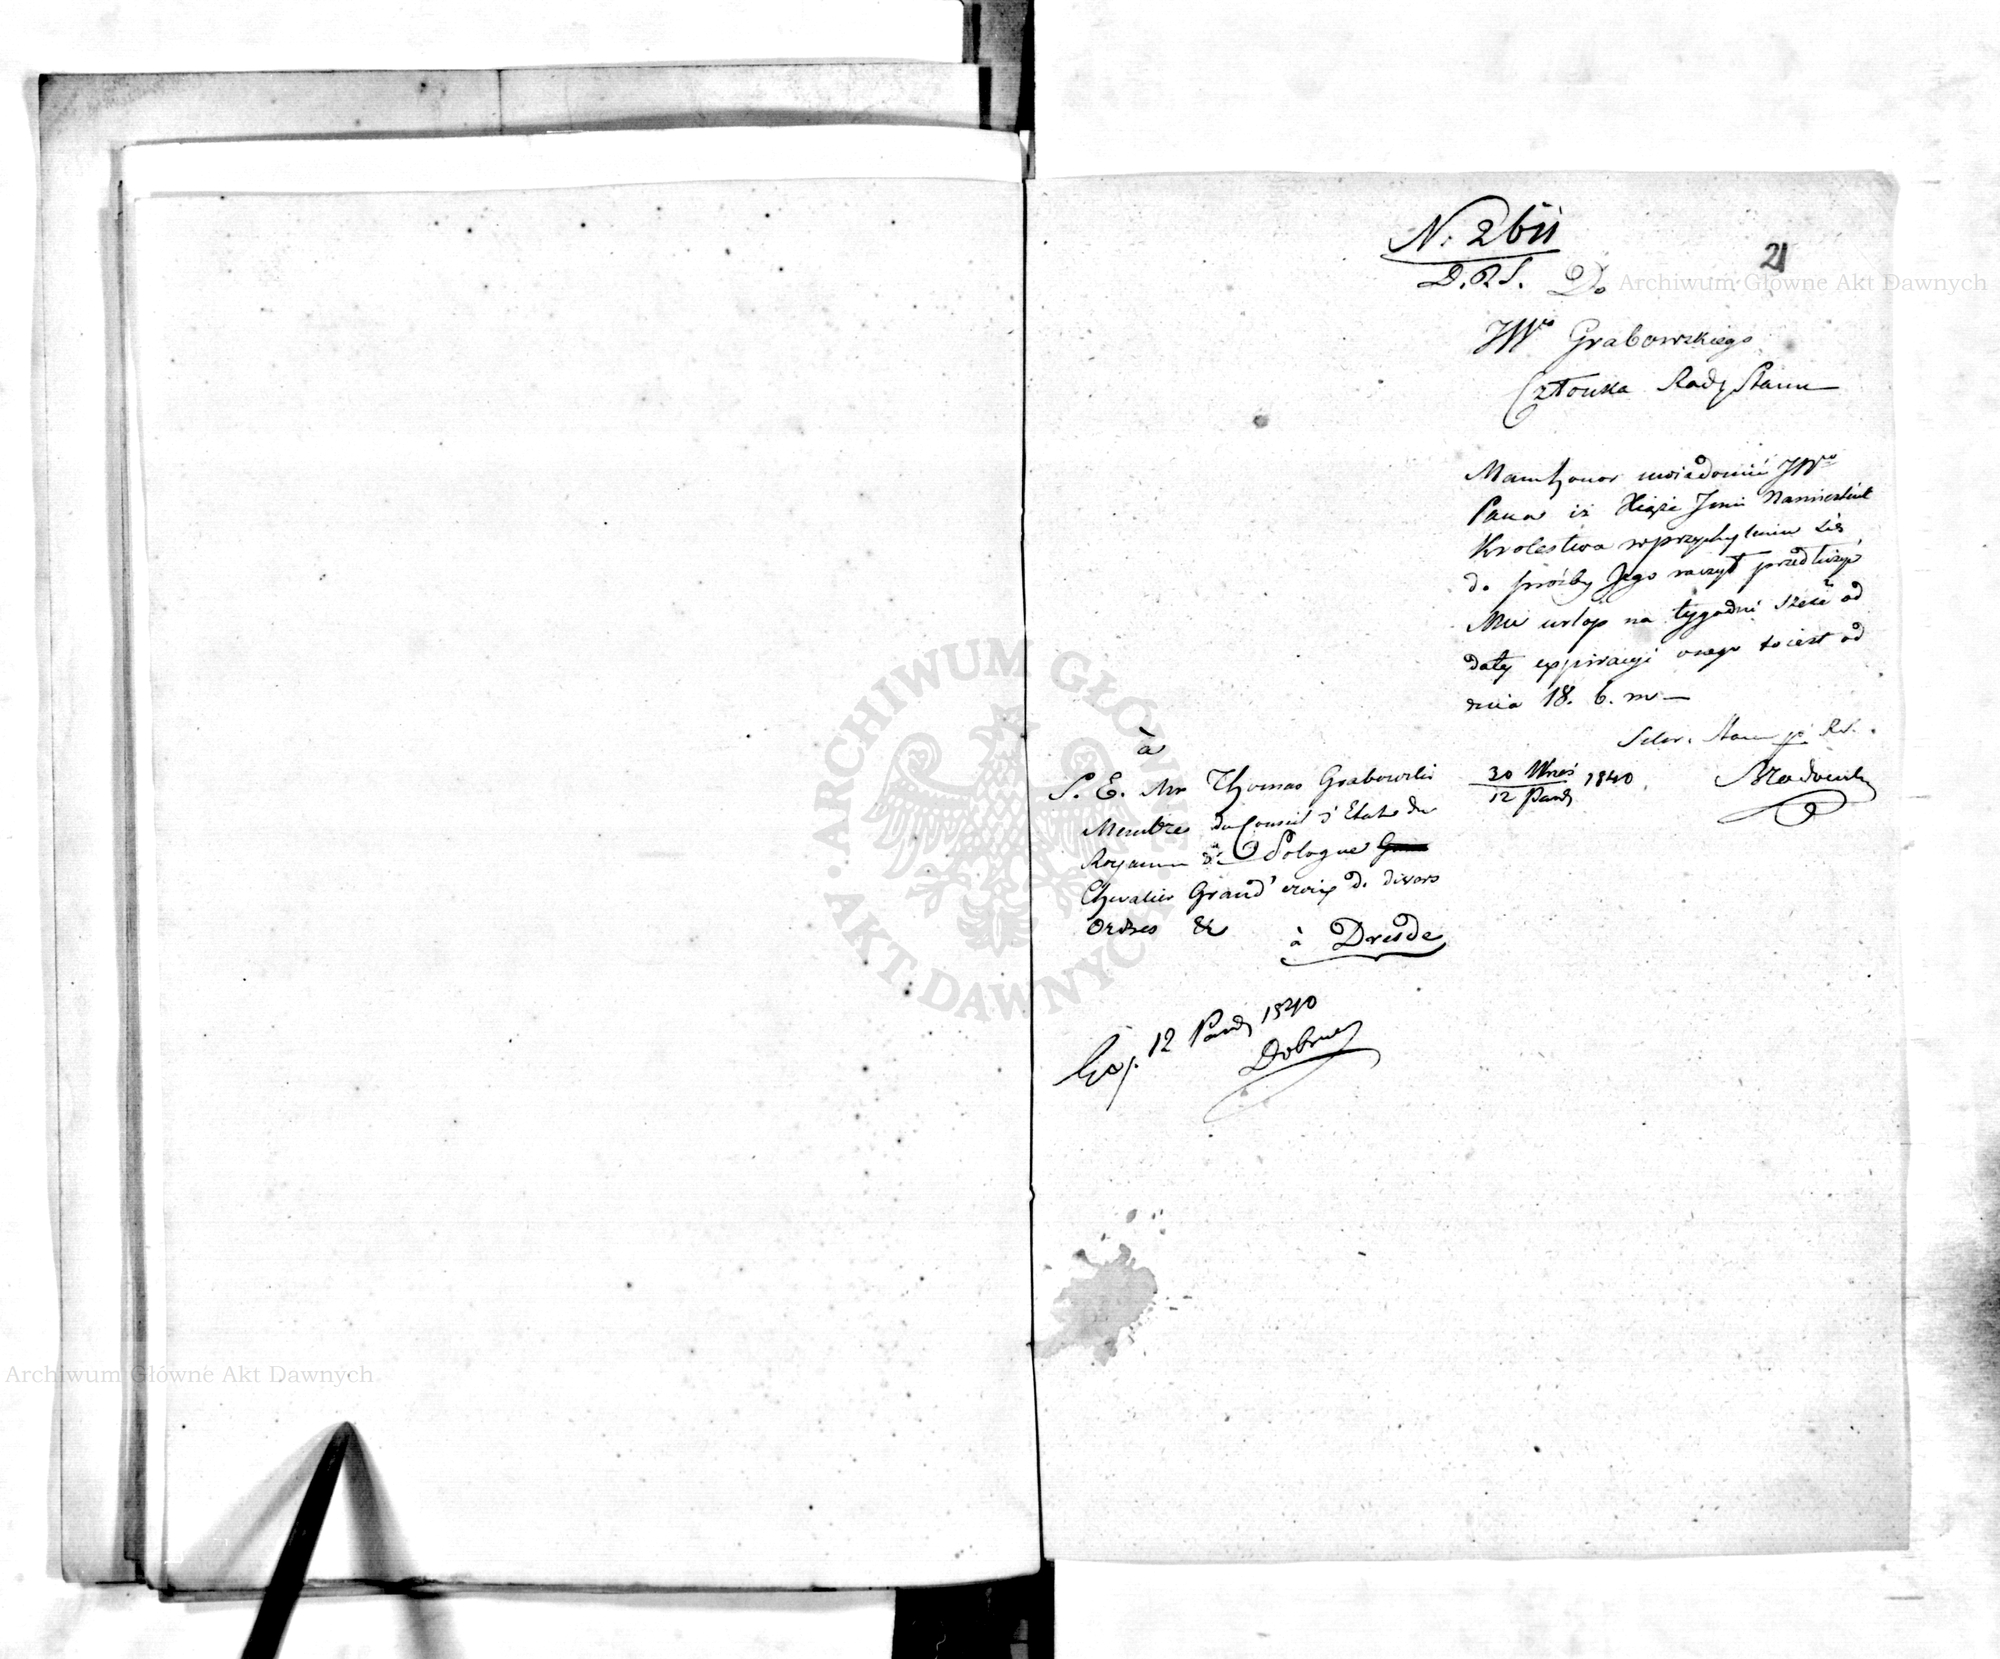 21
N. 2611
D.R.S.
Do
JWo Grabowskiego
Członka Rady Stanu
Mam honor uwiedomić JWo
Pana iż Xiąże Jmć Namiestnik
Krolestwa w przychyleniu się
do prośby Jego raczył przedłużyć
Mu urlop na tygodni sześć od
daty expiracyi onego to iest od
dnia 18. b. m—
Sekr. Stanu p. R.S.
30 Wrześ 1840
12 Paźd
à
S. E. Mr Thomas Grabowski
Membre du Conseil d'Etat du
Royaume de Pologne
Chevalier Grand' croix de divers
Ordres &c
à Dresde
Exp. 12 Paźd 1840
ARCHIWUM GŁÓWNE AKT DAWNYCH
Archiwum Główne Akt Dawnych
Archiwum Główne Akt Dawnych